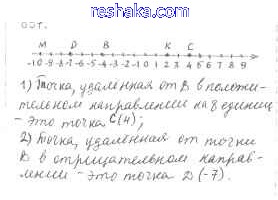 reshaka.com
М D B K C
-10 -9 -8 -7 -6 -5 -4 -3 -2 -1 0 1 2 3 4 5 6 7 8 9
1) Точка, удаленная от B в положи-
тельном направлении на 8 единиц
- это точка C(4);
2) Точка, удаленная от точки
B в отрицательном направ-
лении - это точка D (-7).